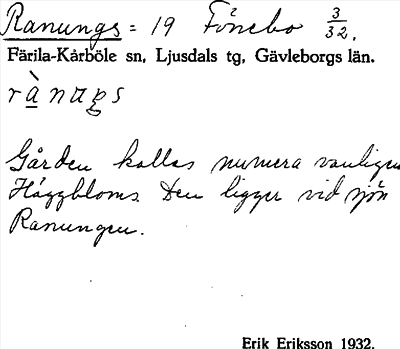 Ranungs = 19 Fönebo 3/32.
Färila-Kårböle sn, Ljusdals tg, Gävleborgs län.
Gården kallas numera vanligen
Häggbloms. Den ligger vid sjön
Ranungen.
Erik Eriksson 1932.